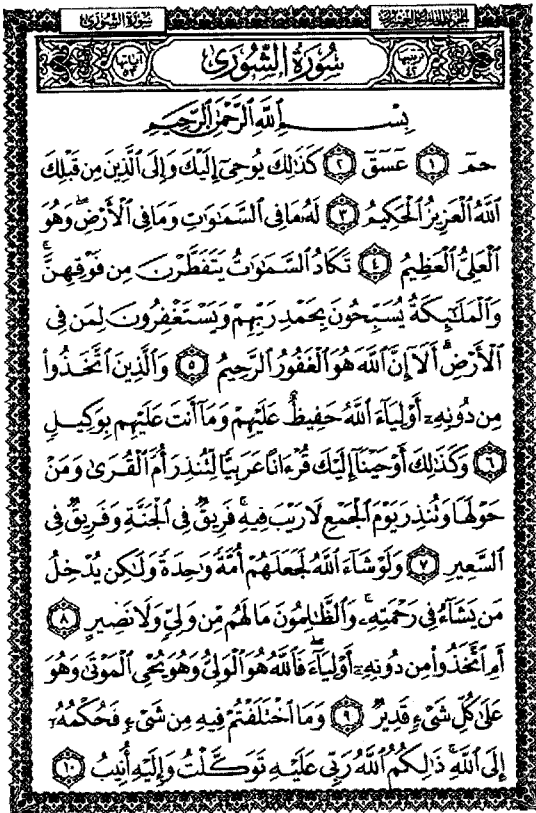 سُورَةُ الشُّورَىٰ
سُورَةُ الشُّورَىٰ
بِسْمِ ٱللَّهِ ٱلرَّحْمَٰنِ ٱلرَّحِيمِ
حمٓ ١ عٓسٓقٓ ٢ كَذَٰلِكَ يُوحِىٓ إِلَيْكَ وَإِلَى ٱلَّذِينَ مِن قَبْلِكَ
ٱللَّهُ ٱلْعَزِيزُ ٱلْحَكِيمُ ٣ لَهُۥ مَا فِى ٱلسَّمَٰوَٰتِ وَمَا فِى ٱلْأَرْضِ ۖ وَهُوَ
ٱلْعَلِىُّ ٱلْعَظِيمُ ٤ تَكَادُ ٱلسَّمَٰوَٰتُ يَتَفَطَّرْنَ مِن فَوْقِهِنَّ ۚ
وَٱلْمَلَٰٓئِكَةُ يُسَبِّحُونَ بِحَمْدِ رَبِّهِمْ وَيَسْتَغْفِرُونَ لِمَن فِى
ٱلْأَرْضِ ۗ أَلَآ إِنَّ ٱللَّهَ هُوَ ٱلْغَفُورُ ٱلرَّحِيمُ ٥ وَٱلَّذِينَ ٱتَّخَذُوا۟
مِن دُونِهِۦٓ أَوْلِيَآءَ ٱللَّهُ حَفِيظٌ عَلَيْهِمْ وَمَآ أَنتَ عَلَيْهِم بِوَكِيلٍ
٦ وَكَذَٰلِكَ أَوْحَيْنَآ إِلَيْكَ قُرْءَانًا عَرَبِيًّا لِّتُنذِرَ أُمَّ ٱلْقُرَىٰ وَمَنْ
حَوْلَهَا وَتُنذِرَ يَوْمَ ٱلْجَمْعِ لَا رَيْبَ فِيهِ ۚ فَرِيقٌ فِى ٱلْجَنَّةِ وَفَرِيقٌ فِى
ٱلسَّعِيرِ ٧ وَلَوْ شَآءَ ٱللَّهُ لَجَعَلَهُمْ أُمَّةً وَٰحِدَةً وَلَٰكِن يُدْخِلُ
مَن يَشَآءُ فِى رَحْمَتِهِۦ ۚ وَٱلظَّٰلِمُونَ مَا لَهُم مِّن وَلِىٍّ وَلَا نَصِيرٍ ٨
أَمِ ٱتَّخَذُوا۟ مِن دُونِهِۦٓ أَوْلِيَآءَ ۖ فَٱللَّهُ هُوَ ٱلْوَلِىُّ وَهُوَ يُحْىِ ٱلْمَوْتَىٰ وَهُوَ
عَلَىٰ كُلِّ شَىْءٍ قَدِيرٌ ٩ وَمَا ٱخْتَلَفْتُمْ فِيهِ مِن شَىْءٍ فَحُكْمُهُۥٓ
إِلَى ٱللَّهِ ۚ ذَٰلِكُمُ ٱللَّهُ رَبِّى عَلَيْهِ تَوَكَّلْتُ وَإِلَيْهِ أُنِيبُ ١٠